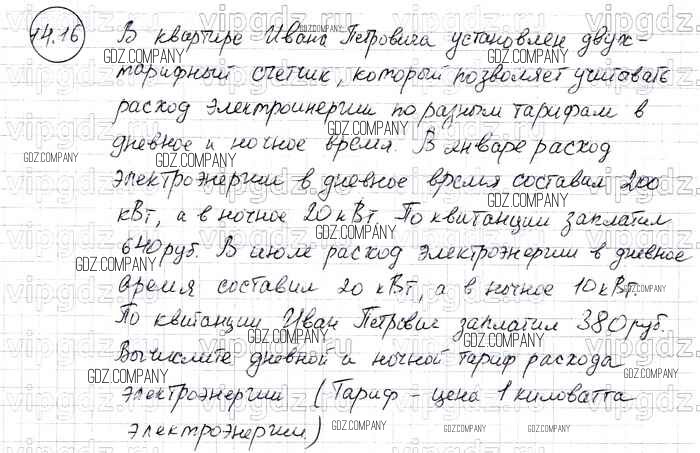 14.16 В квартире Ивана Петровича установлен двух-
тарифный счетчик, который позволяет учитывать
расход электроинергии по разным тарифам в
дневное и ночное время. В январе расход
электроэнергии в дневное время составил 200
кВт, а в ночное 20 кВт. По квитанции заплатил
640 руб. В июле расход электроэнергии в дневное
время составил 20 кВт, а в ночное 10 кВт.
По квитанции Иван Петрович заплатил 380 руб.
Вычислите дневной и ночной тариф расхода
электроэнергии (Тариф - цена 1 киловатта
электроэнергии)